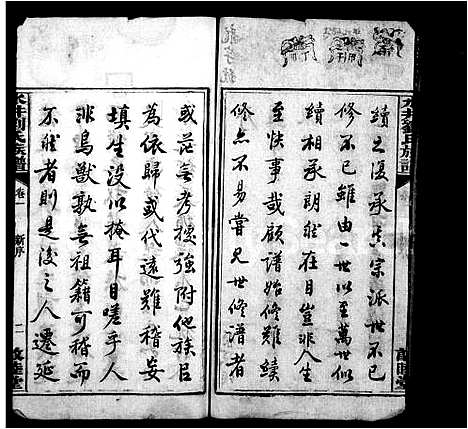 續之復承吾宗派世不已
修不已雖由一世以至萬世似
續相承朗然在目豈非人生
至快事哉顧譜始修難續
修亦不易嘗見世修譜者
敦睦堂
水井劉氏族譜
卷一
新序
二
敦睦堂
或茫無考據強附他族臣
為依歸或代遠難稽妄
填生沒以掩耳目嗟乎人
非鳥獸孰無祖籍可稽而
不然者則是後之人遷延